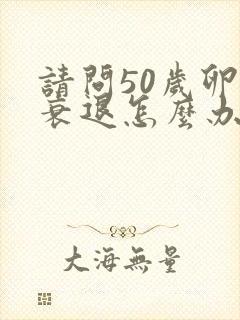 請問50歲卵
衰退怎麼办
大海無量